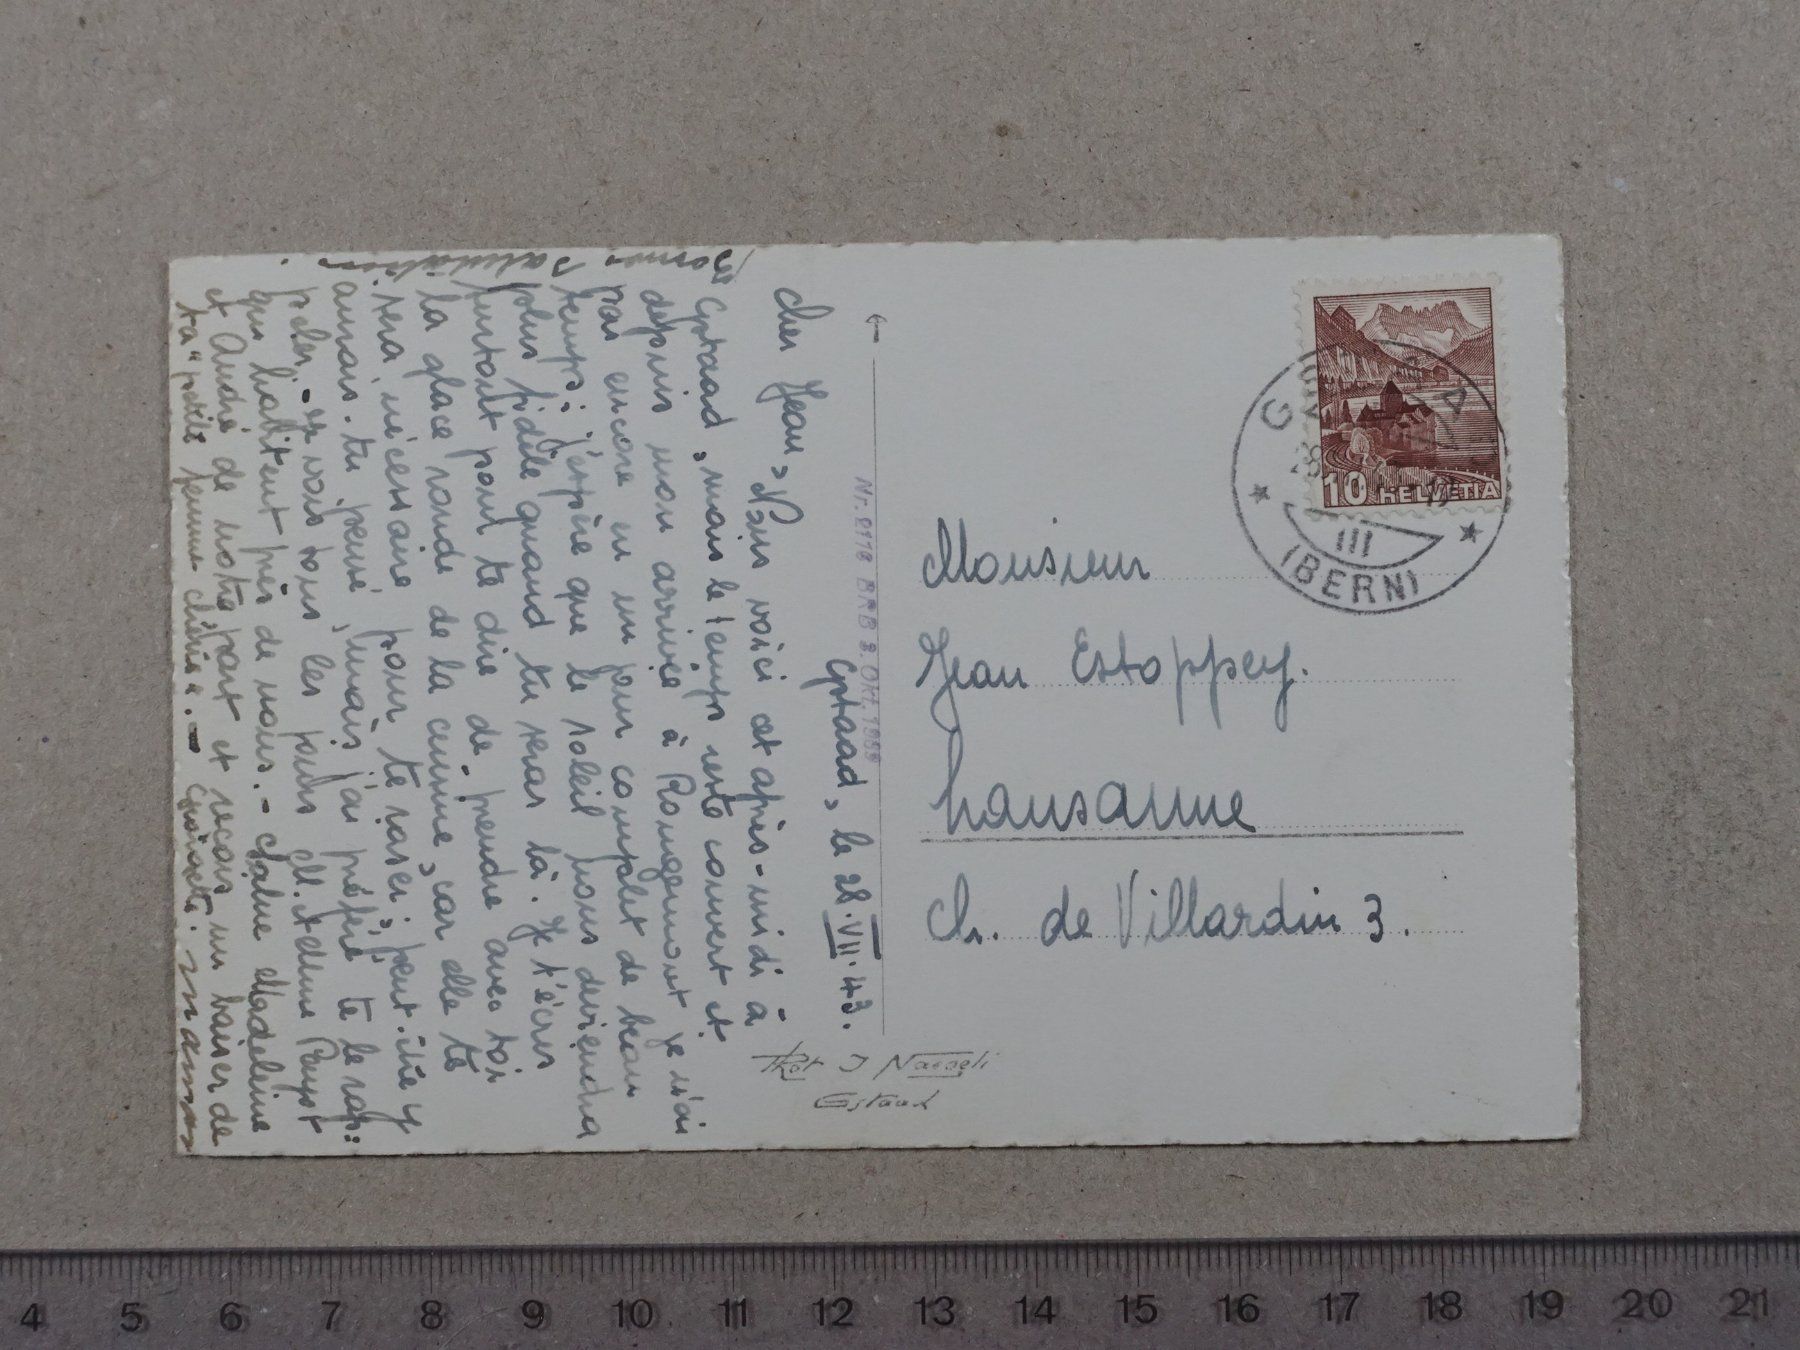 Gstaad, le 28.VII.43.
Cher Jean, Nous voici cet après-midi à
Gstaad, mais le temps reste couvert et
depuis mon arrivée à Rougemont je n'ai
pas encore eu un jour complet de beau
temps; j'espère que le soleil nous deviendra
plus fidèle quand tu seras là. Je t'écris
surtout pour te dire de prendre avec toi
la glace ronde de la cuisine, car elle te
sera nécessaire pour te raser; peut-être y
aurais-tu pensé, mais j'ai préféré te le rap-
peler. - Je vois tous les jours M. et Mme
qui habitent près de nous. - Madeleine
et André de notre part et reçois un baiser de
ta "petite femme chérie". - maman
Bonnes salutations.
Phot J Naegeli
Gstaad
Nr. 2116 BRB 3. OKT. 1939
10 HELVETIA
28
III
(BERN)
Monsieur
Jean Estoppey.
Lausanne
Ch. de Villardin 3.
4 5 6 7 8 9 10 11 12 13 14 15 16 17 18 19 20 21